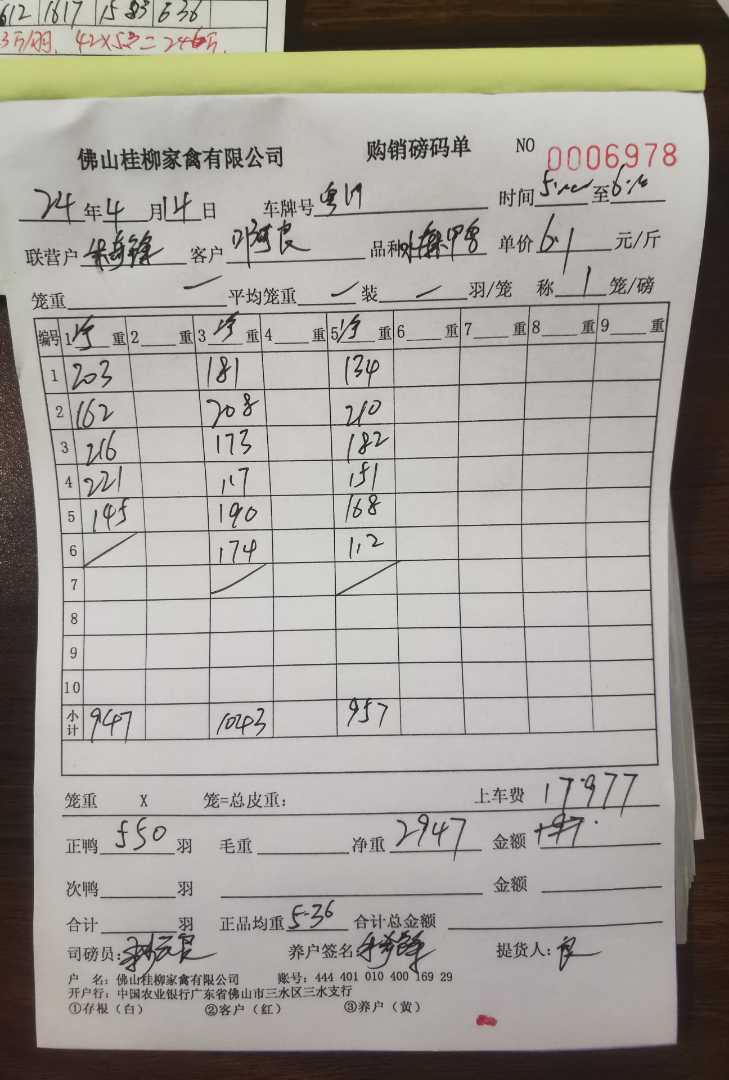 612 1617 1583 636
3万/羽. 42×53=246万.
佛山桂柳家禽有限公司 购销磅码单 NO 0006978
24年4月14日 车牌号 粤 时间 5: 至6:
联营户 客户 良 品种 单价6.1元/斤
笼重 一 平均笼重 一 装 一 羽/笼 称 1 笼/磅
编号 1净重 2重 3净重 4重 5净重 6重 7重 8重 9重
1 203 181 134
2 162 208 210
3 216 173 182
4 221 117 151
5 145 190 168
6 174 112
7
8
9
10
小计 947 1043 957
笼重 X 笼=总皮重: 上车费 17977
正鸭 550 羽 毛重 净重 2947 金额
次鸭 羽 金额
合计 羽 正品均重 5.36 合计总金额
司磅员: 养户签名: 提货人: 良
户 名: 佛山桂柳家禽有限公司 账号: 444 401 010 400 169 29
开户行: 中国农业银行广东省佛山市三水区三水支行
①存根(白) ②客户(红) ③养户(黄)